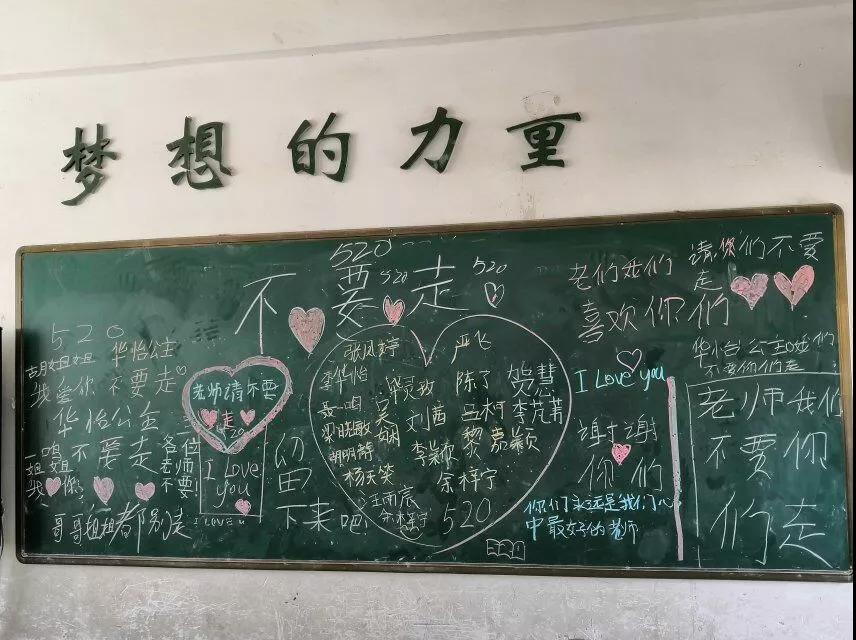 梦想的力量
520
不要走
520
520
520
胡姐姐 华怡公主
我爱你 不要走
华怡公主
一鸣
姐姐
不要走
各位
老师
不要
我 你
哥哥姐姐都别走
老师请不要
走
520
I Love
you
I LOVE u
留
下来吧
张凤婷
严飞
李华怡
华灵致
陈了
贺慧
聂一鸣
吴娴
刘茜
王柯
李芃菁
梁晓敏
胡明静
李颖
黎嘉颖
杨天笑
余梓宁
汪雨辰
余梓宁
520
老们我们
喜欢你们
I Love you
谢谢
你们
你们永远是我们心
中最好的老师
请你们不要
走
华怡公主我们
不要你们走
老师我们
不要你
们走